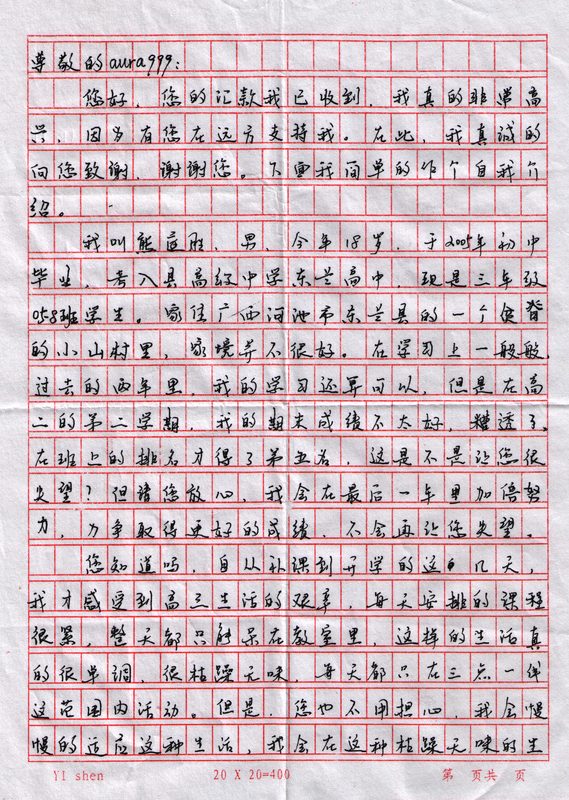 尊敬的aura999:
您好,您的汇款我已收到,我真的非常高
兴,因为有您在远方支持我。在此,我真诚的
向您致谢,谢谢您。下面我简单的作个自我介
绍。
我叫熊莲胜,男,今年18岁,于2005年初中
毕业,考入县高级中学东兰高中,现是三年级
058班学生。家住广西河池市东兰县的一个贫脊
的小山村里,家境并不很好。在学习上一般般,
过去的两年里,我的学习还算可以,但是在高
二的第二学期,我的期末成绩不太好,糟透了,
在班上的排名才得了第五名,这是不是让您很
失望?但请您放心,我会在最后一年里加倍努
力,力争取得更好的成绩,不会再让您失望。
您知道吗,自从补课到开学的这几天,
我才感受到高三生活的艰辛,每天安排的课程
很紧,整天都只能呆在教室里,这样的生活真
的很单调,很枯躁无味,每天都只在三点一线
这范围内活动。但是,您也不用担心,我会慢
慢的适应这种生活,我会在这种枯躁无味的生
YI shen 20 X 20=400 第 页共 页